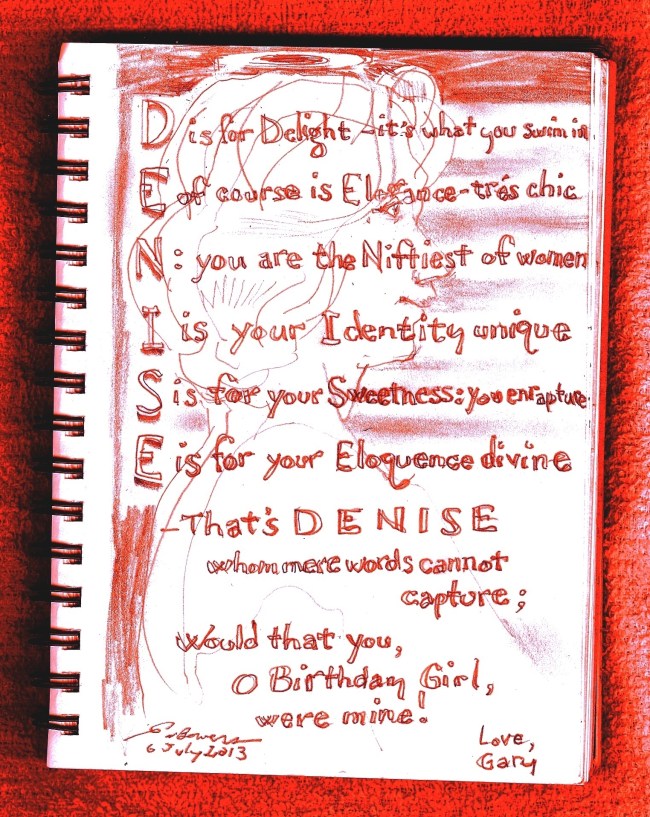 D is for Delight - it's what you swim in
E of course is Elegance - trés chic
N: you are the Niftiest of women
I is your Identity unique
S is for your Sweetness: you enrapture
E is for your Eloquence divine
- That's DENISE
whom mere words cannot
capture;
Would that you,
O Birthday Girl,
were mine!
6 July 2013
Love,
Gary